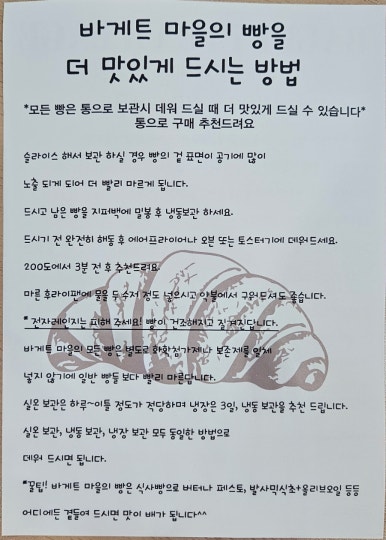 바게트 마을의 빵을
더 맛있게 드시는 방법
*모든 빵은 통으로 보관시 데워 드실 때 더 맛있게 드실 수 있습니다*
통으로 구매 추천드려요
슬라이스 해서 보관 하실 경우 빵의 겉 표면이 공기에 많이
노출 되게 되어 더 빨리 마르게 됩니다.
드시고 남은 빵을 지퍼백에 밀봉 후 냉동보관 하세요.
드시기 전 완전히 해동 후 에어프라이어나 오븐 또는 토스터기에 데워드세요.
200도에서 3분 전 후 추천드려요.
마른 후라이팬에 물을 두 수저 정도 넣으시고 약불에서 구워드셔도 좋습니다.
* 전자레인지는 피해 주세요! 빵이 건조해지고 질겨진답니다.
바게트 마을의 모든 빵은 별도로 화학첨가제나 보존제를 일체
넣지 않기에 일반 빵들 보다 빨리 마릅니다.
실온 보관은 하루~이틀 정도가 적당하며 냉장은 3일, 냉동 보관을 추천 드립니다.
실온 보관, 냉동 보관, 냉장 보관 모두 동일한 방법으로
데워 드시면 됩니다.
*꿀팁! 바게트 마을의 빵은 식사빵으로 버터나 페스토, 발사믹식초+올리브오일 등등
어디에든 곁들여 드시면 맛이 배가 됩니다^^